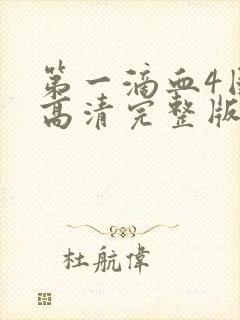 第一滴血4
高清完整版
杜航偉